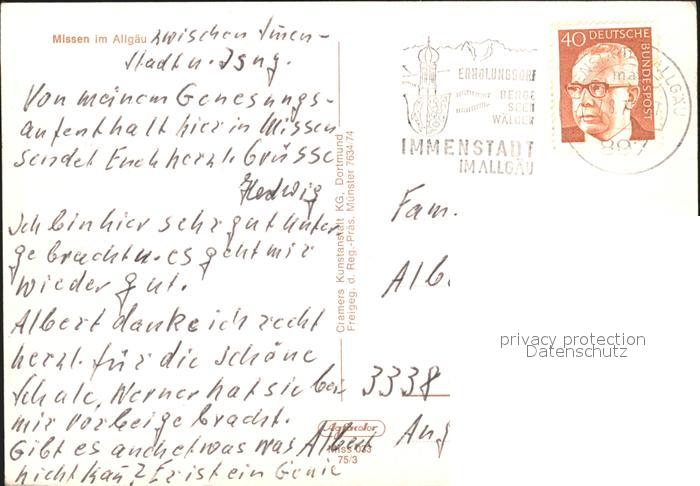 Missen im Allgäu zwischen Immen-
stadt u. Isny.
Von meinem Genesungs-
aufenthalt hier in Missen
sendet Euch herzl. Grüsse
Hedwig
Ich bin hier sehr gut unter-
gebracht u. es geht mir
wieder gut.
Albert danke ich recht
herzl. für die schöne
Schale, Werner hat sie bei
mir vorbeigebracht.
Gibt es auch etwas was Albert
nicht kann? Er ist ein Genie
Cramers Kunstanstalt KG, Dortmund
Freigeg. d. Reg.-Präs. Münster 7634/74
Agfacolor
Miss 033
75/3
ERHOLUNGSORT
BERGE
SEEN
WÄLDER
IMMENSTADT
IM ALLGÄU
40 DEUTSCHE
BUNDESPOST
ALLGÄU
897
Fam.
Alb
3338
privacy protection
Datenschutz